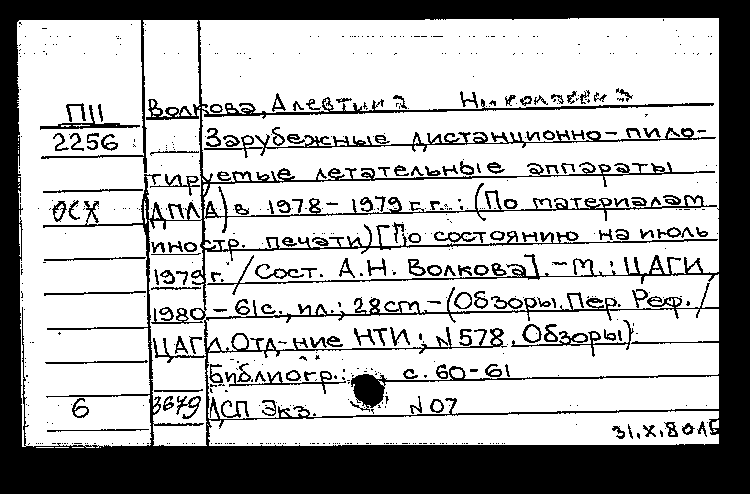 ПII Волкова, Алевтина Николаевна
2256 Зарубежные дистанционно-пило-
тируемые летательные аппараты
ОСХ (ДПЛА) в 1978-1979 г.г.: (По материалам
иностр. печати) [По состоянию на июль
1979 г. / Сост. А.Н. Волкова]. - М.: ЦАГИ,
1980 - 61с., ил.; 28см. - (Обзоры. Пер. Реф. /
ЦАГИ. Отд-ние НТИ; N 578. Обзоры).
Библиогр.: с. 60-61
6 3679 ДСП Экз. N 07
31.X.80